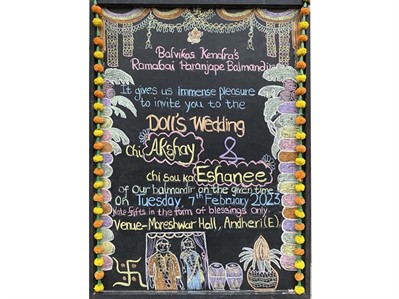 Balvikas Kendra's
Ramabai Paranjape Balmandir
It gives us immense pleasure
to invite you to the
Doll's Wedding
Chi Akshay &
chi sou ka Eshanee
of our balmandir on the given time
on Tuesday, 7th February 2023
Note-Gifts in the form of blessings Only.
Venue-Moreshwar Hall, Andheri(E).